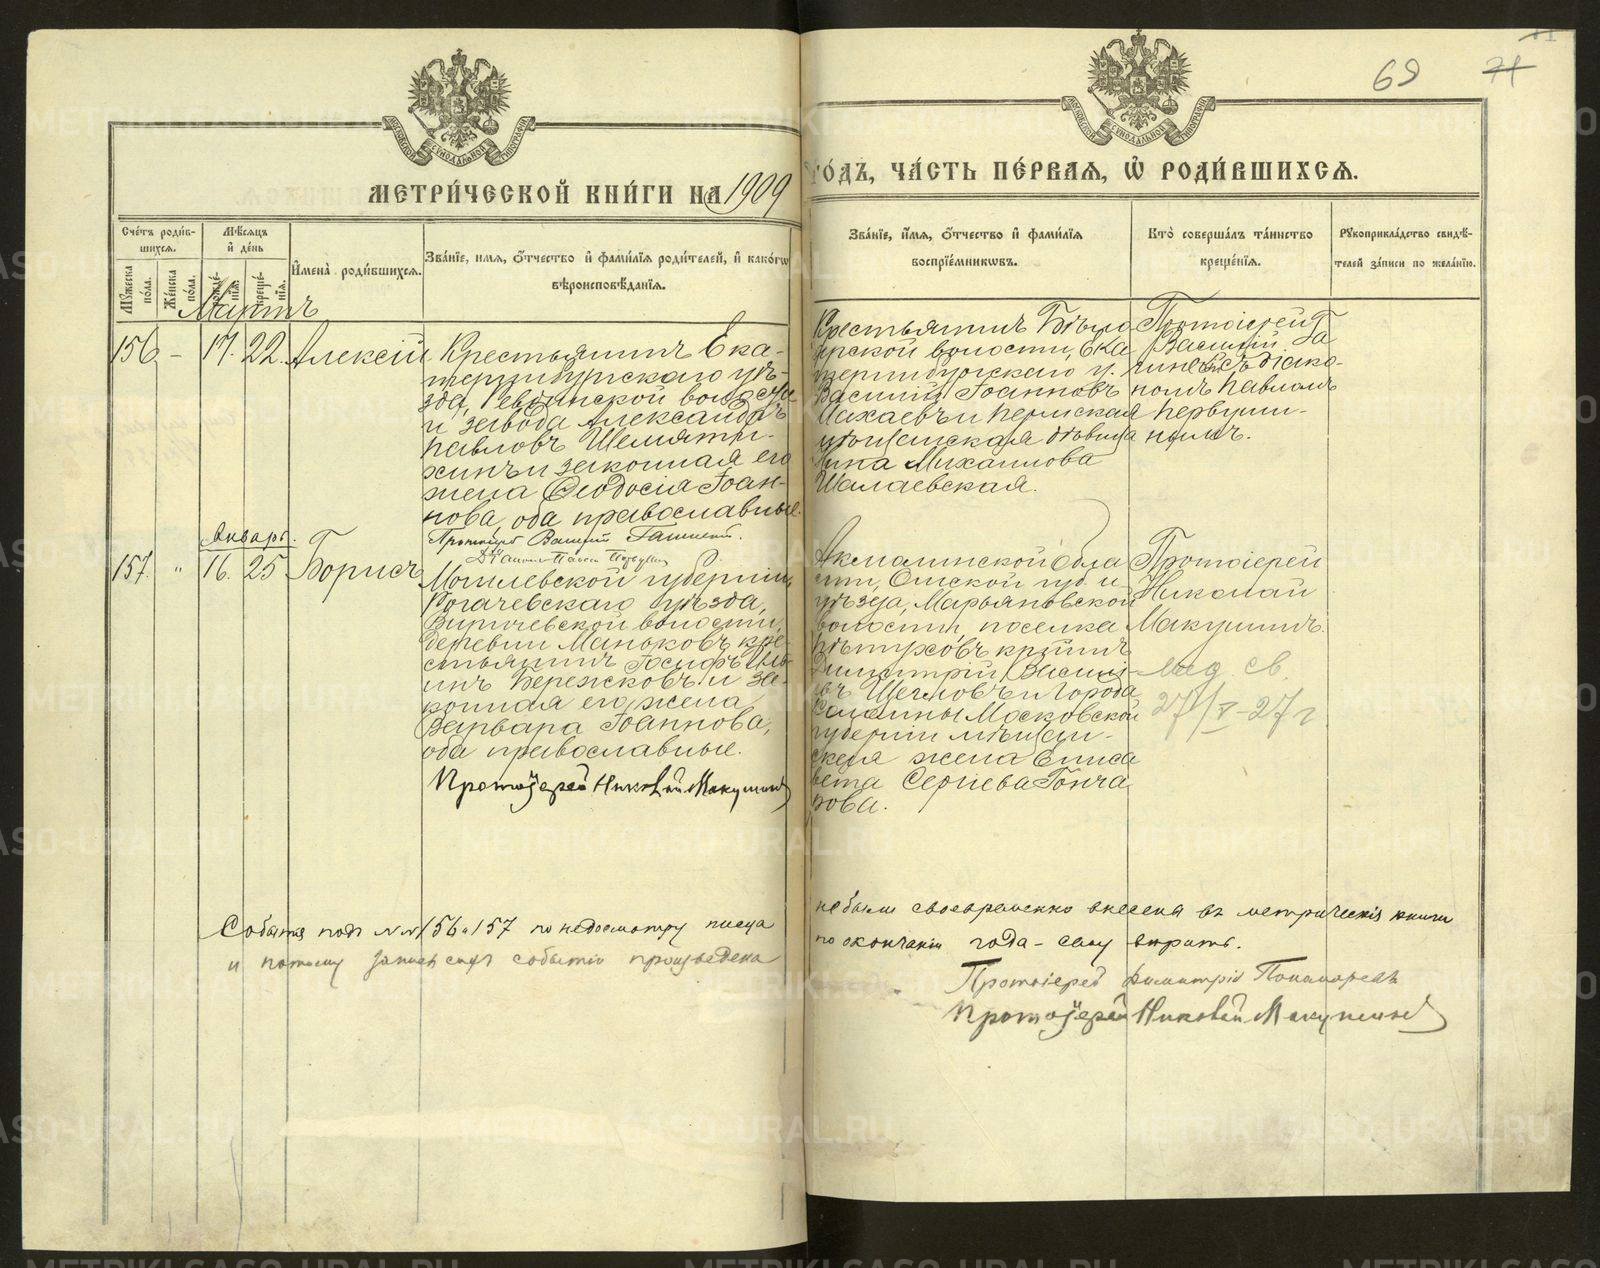 69 71
МОСКОВСКОЙ СУНОДАЛЬНОЙ ТИПОГРАФІИ
МОСКОВСКОЙ СУНОДАЛЬНОЙ ТИПОГРАФІИ
МЕТРИ́ЧЕСКОЙ КНИ́ГИ НА 1909
ГО́ДЪ, ЧА́СТЬ ПЕ́РВАЯ, Ѽ РОДИ́ВШИХСЯ.
Сче́тъ роди́в-
шихся.
Мѣ́сяцъ
и҆ де́нь
Мꙋ́жеска по́ла.
Же́нска по́ла.
рожде́нїя.
креще́нїя.
И҆мена̀ роди́вшихся.
Зва́нїе, и҆́мя, ѻ҆́тчество и҆ фами́лїя роди́телей, и҆ како́гѡ
вѣроисповѣ́данїя.
Зва́нїе, и҆́мя, ѻ҆́тчество и҆ фами́лїя
воспрїе́мникѡвъ.
Кто̀ соверша́лъ та́инство
креще́нїя.
Рꙋкоприкла́дство свидѣ́-
телей за́писи по жела́нїю.
Мартъ
156 – 17. 22. Алексій
Крестьянинъ Ека-
теринбургскаго уѣ-
зда, Ревдинской волости
и завода Александръ
Павловъ Шемяти-
хинъ и законная его
жена Ѳеодосія Іоан-
нова, оба православные.
Протоіерей Василій
Діаконъ Павелъ
Крестьянинъ Бѣло
ярской волости, Ека
теринбургскаго у.
Василій Іоанновъ
и Пермская
дѣвица
Михаилова
Шалаевская.
Протоіерей
Василій Га
съ діако-
номъ Павломъ
Первуши-
нымъ.
Январь.
157. " 16. 25 Борисъ
Могилевской губерніи
Рогачевскаго уѣзда,
волости,
деревни Маньковъ кре-
стьянинъ Іосифъ
Бережковъ и за-
конная его жена
Варвара Іоаннова,
оба православные.
Протоіерей Николай Макушинъ
Акмолинской обла
сти, Омской губ и
уѣзда, Марьяновской
волости, поселка
Пѣтуховъ кр-нинъ
Димитрій Василі-
евъ Щегловъ и города
Коломны Московской
губерніи мѣщан-
ская жена Елиса
вета Сергіева Гонча
рова.
Протоіерей
Николай
Макушинъ.
св.
27/V-27 г
Событія подъ №№ 156 и 157 по недосмотру писца
не были своевременно внесены въ метрическія книги
и потому запись сихъ событій произведена
по окончаніи года –
Протоіерей Димитрій Пономаревъ
Протоіерей Николай Макушинъ
METRIKI.GASO-URAL.RU